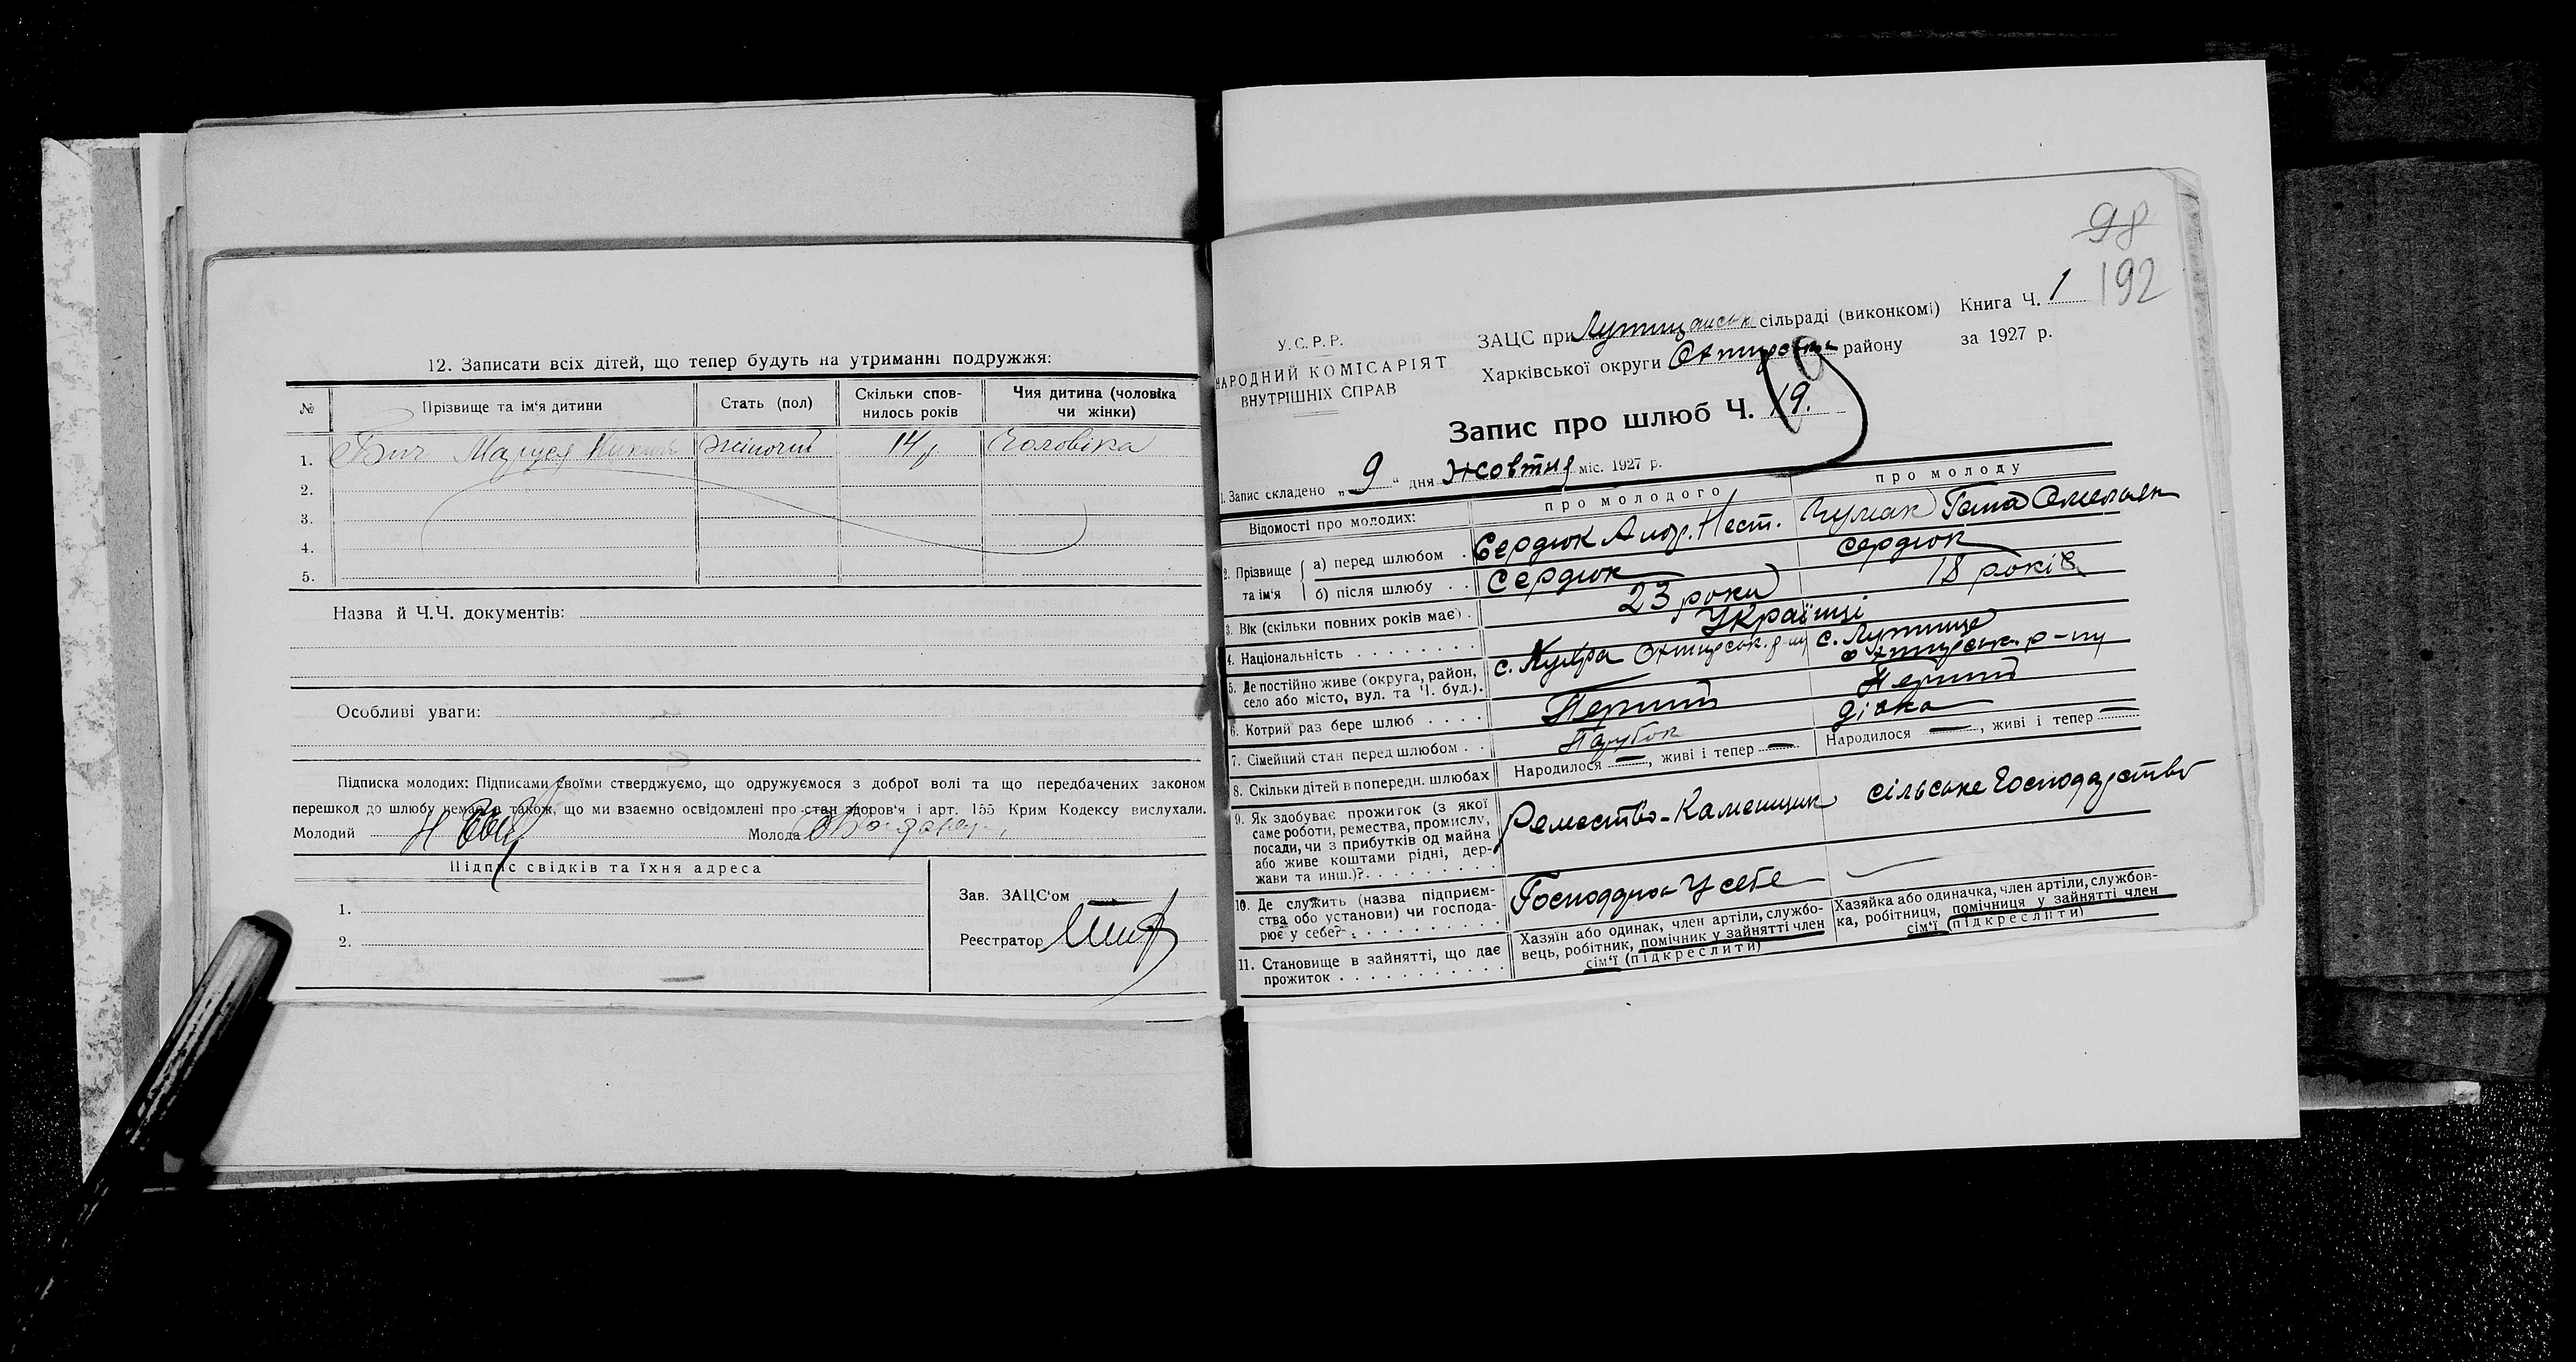 12. Записати всіх дітей, що тепер будуть на утриманні подружжя:
№ Прізвище та ім'я дитини Стать (пол) Скільки спов-нилось років Чия дитина (чоловіка чи жінки)
1. Бич Маруся жіночий 14 р. Чоловіка
2.
3.
4.
5.
Назва й Ч.Ч. документів:
Особливі уваги:
Підписка молодих: Підписами своїми стверджуємо, що одружуємося з доброї волі та що передбачених законом
перешкод до шлюбу немає, а також, що ми взаємно освідомлені про стан здоров'я і арт. 155 Крим Кодексу вислухали.
Молодий Н Бич Молода
Підпис свідків та їхня адреса
1.
2.
Зав. ЗАЦС'ом
Реєстратор
98
192
У.С.Р.Р.
НАРОДНИЙ КОМІСАРІЯТ
ВНУТРІШНІХ СПРАВ
ЗАЦС при Лутищанськ сільраді (виконкомі) Книга Ч. 1
Харківської округи Охтирськ району за 1927 р.
Запис про шлюб Ч. 19.
1. Запис складено „9“ дня жовтня міс. 1927 р.
Відомості про молодих: про молодого про молоду
2. Прізвище та ім'я
а) перед шлюбом . Сердюк Андр. Нест. Чумак Ганна Омелян
б) після шлюбу . . Сердюк Сердюк
3. Вік (скільки повних років має) . 23 роки 18 років
4. Національність . . . . . . . . Українці
5. Де постійно живе (округа, район, село або місто, вул. та Ч. буд.). с. Куп'єв Охтирськ. р-ну с. Лутище Охтирськ. р-ну
6. Котрий раз бере шлюб . . . . Перший Перший
7. Сімейний стан перед шлюбом . . Парубок дівка
8. Скільки дітей в попередн. шлюбах Народилося —, живі і тепер — Народилося —, живі і тепер —
9. Як здобуває прожиток (з якої
саме роботи, ремества, промислу,
посади, чи з прибутків од майна
або живе коштами рідні, дер-
жави та инш.)? . . . . . . . . Ремество-Каменщик сільське Господарство
10. Де служить (назва підприєм-
ства або установи) чи господа-
рює у себе? . . . . . . . . . Господарює У себе —
11. Становище в занятті, що дає
прожиток . . . . . . . . . . .
Хазяїн або одинак, член артілі, службо-
вець, робітник, помічник у зайнятті член
сім'ї (підкреслити)
Хазяйка або одиначка, член артілі, службов-
ка, робітниця, помічниця у зайнятті член
сім'ї (підкреслити)